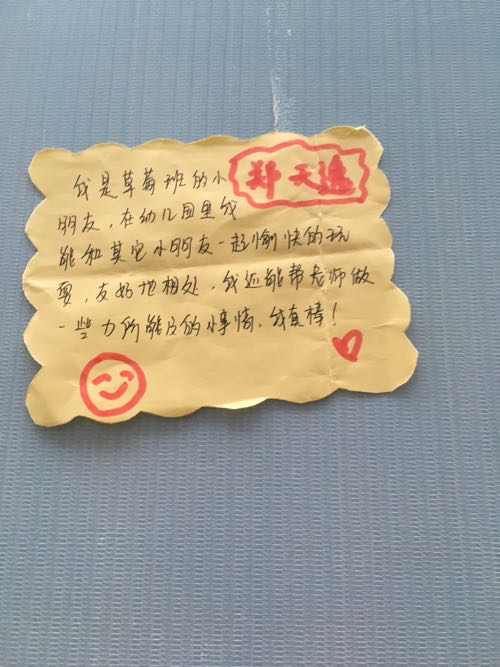 我是草莓班的小
郑天遥
朋友，在幼儿园里我
能和其它小朋友一起愉快的玩
耍，友好地相处，我还能帮老师做
一些力所能及的小事情，我真棒！